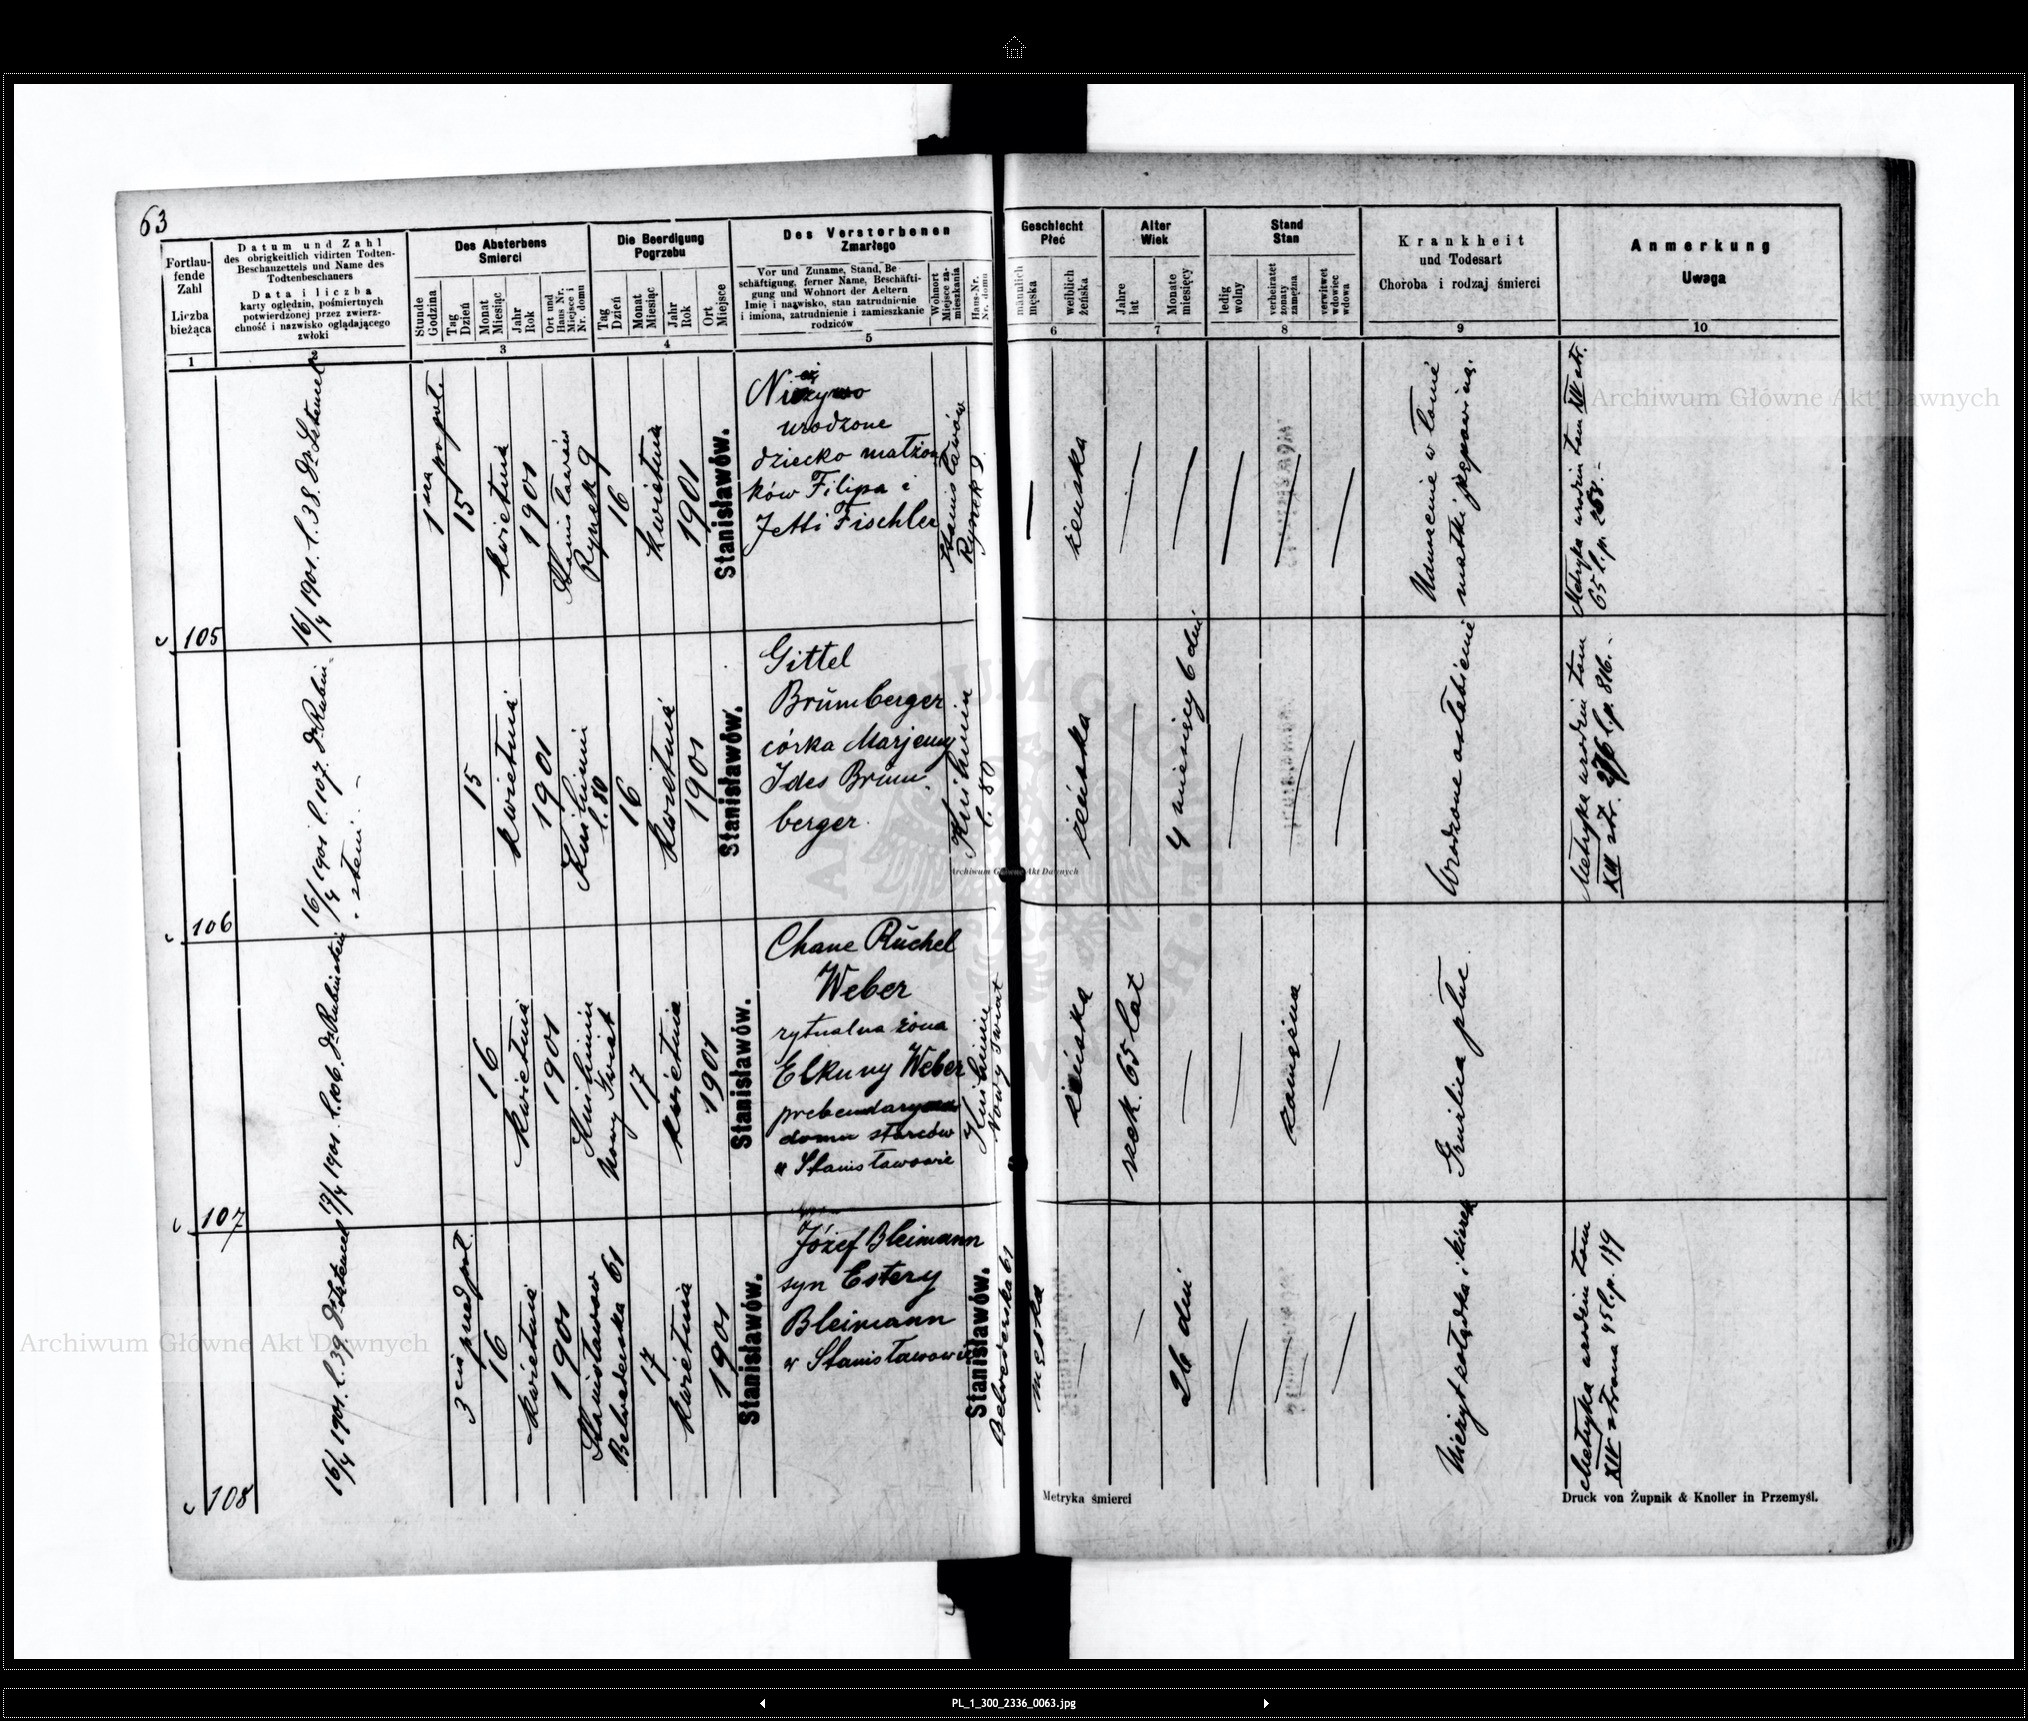 63
Fortlau-
fende
Zahl
Liczba
bieżąca
Datum und Zahl
des obrigkeitlich vidirten Todten-
Beschauzettels und Name des
Todtenbeschauers
Data i liczba
karty oględzin, pośmiertnych
potwierdzonej przez zwierz-
chność i nazwisko oglądającego
zwłoki
Des Absterbens
Smierci
Stunde
Godzina
Tag
Dzień
Monat
Miesiąc
Jahr
Rok
Ort und
Haus Nr.
Miejsce i
Nr. domu
Die Beerdigung
Pogrzebu
Tag
Dzień
Monat
Miesiąc
Jahr
Rok
Ort
Miejsce
Des Verstorbenen
Zmarłego
Vor und Zuname, Stand, Be
schäftigung, ferner Name, Beschäfti-
gung und Wohnort der Aeltern
Imię i nazwisko, stan zatrudnienie
i imiona, zatrudnienie i zamieszkanie
rodziców
Wohnort
Miejsce za-
mieszkania
Haus-Nr.
Nr. domu
Geschlecht
Płeć
männlich
męska
weiblich
żeńska
Alter
Wiek
Jahre
lat
Monate
miesięcy
Stand
Stan
ledig
wolny
verheiratet
żonaty
zamężna
verwitwet
wdowiec
wdowa
Krankheit
und Todesart
Choroba i rodzaj śmierci
Anmerkung
Uwaga
1
3
4
5
6
7
8
9
10
105
16/4 1901. l. 38. Dr.
1 na po poł.
15
kwietnia
1901
Stanisławów
Rynek 9
16
kwietnia
1901
Stanisławów.
urodzone
dziecko małżon
ków Filipa i
Jetti Fischler
Stanisławów
Rynek 9.
żeńska
Uduszenie w łonie
matki pępowiną.
Metryka urodzin tom XIV str.
65 l. p. 258.-
106
16/4 1901 l. 107. Dr. Rubin-
stein. -
15
kwietnia
1901
Knihinin
l. 80
16
kwietnia
1901
Stanisławów.
Gittel
Brümberger
córka Marjemy
Ides Brüm-
berger
Knihinin
l. 80
żeńska
4 miesięcy 6 dni
Wrodzone osłabienie
Metryka urodzin tom
XIII str. 276 l. p. 816.-
107
17/4 1901. l. 106. Dr Rubinstein
16
kwietnia
1901
Knihinin
Nowy Świat
17
kwietnia
1901
Stanisławów.
Chane Rüchel
Weber
rytualna żona
Elkuny Weber
domu starców
w Stanisławowie
Knihinin
Nowy Świat
żeńska
65 lat
zamężna
Gruźlica płuc.
108
16/4 1901. l. 39. Dr.
3 cia przed poł.
16
kwietnia
1901
Stanisławów
Belwederska 61
17
kwietnia
1901
Stanisławów.
Józef Bleimann
syn Estery
Bleimann
w Stanisławowie
Stanisławów.
Belwederska 61
męska
26 dni
Nieżyt żołądka i kiszek
Metryka urodzin tom
XIV strona 45 l. p. 179
Metryka śmierci
Druck von Żupnik & Knoller in Przemyśl.
Archiwum Główne Akt Dawnych
Archiwum Główne Akt Dawnych
Archiwum Główne Akt Dawnych
PL_1_300_2336_0063.jpg